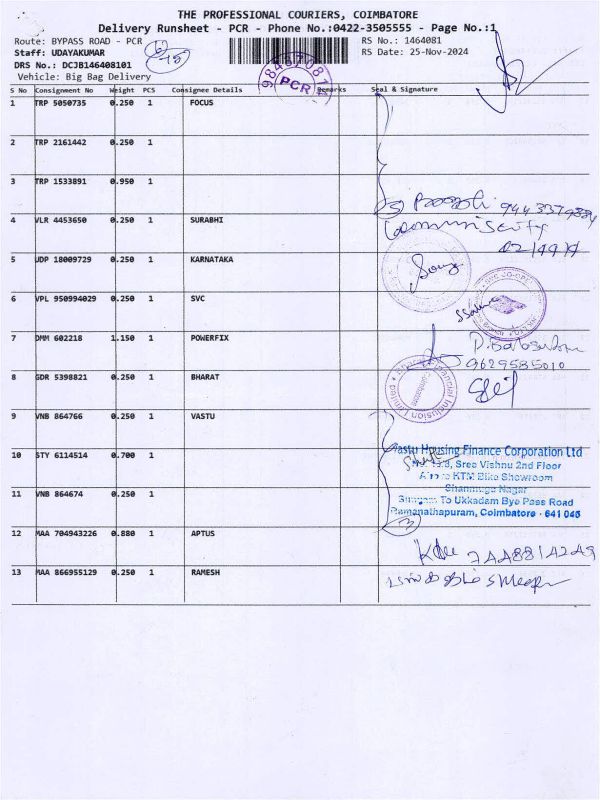 THE PROFESSIONAL COURIERS, COIMBATORE
Delivery Runsheet - PCR - Phone No.:0422-3505555 - Page No.:1
Route: BYPASS ROAD - PCR
Staff: UDAYAKUMAR
DRS No.: DCJB146408101
Vehicle: Big Bag Delivery
RS No.: 1464081
RS Date: 25-Nov-2024
PCR
S No Consignment No Weight PCS Consignee Details Remarks Seal & Signature
1 TRP 5050735 0.250 1 FOCUS
2 TRP 2161442 0.250 1
3 TRP 1533891 0.950 1
4 VLR 4453650 0.250 1 SURABHI
5 UDP 18009729 0.250 1 KARNATAKA
6 VPL 950994029 0.250 1 SVC
7 DMM 602218 1.150 1 POWERFIX
9629585010
8 GDR 5398821 0.250 1 BHARAT
9 VNB 864766 0.250 1 VASTU
10 STY 6114514 0.700 1
Vastu Housing Finance Corporation Ltd
Sree Vishnu 2nd Floor
KTM Bike Showroom
Shanmuga Nagar
Sungam To Ukkadam Bye Pass Road
Ramanathapuram, Coimbatore - 641 045
11 VNB 864674 0.250 1
3
12 MAA 704943226 0.880 1 APTUS
13 MAA 866955129 0.250 1 RAMESH